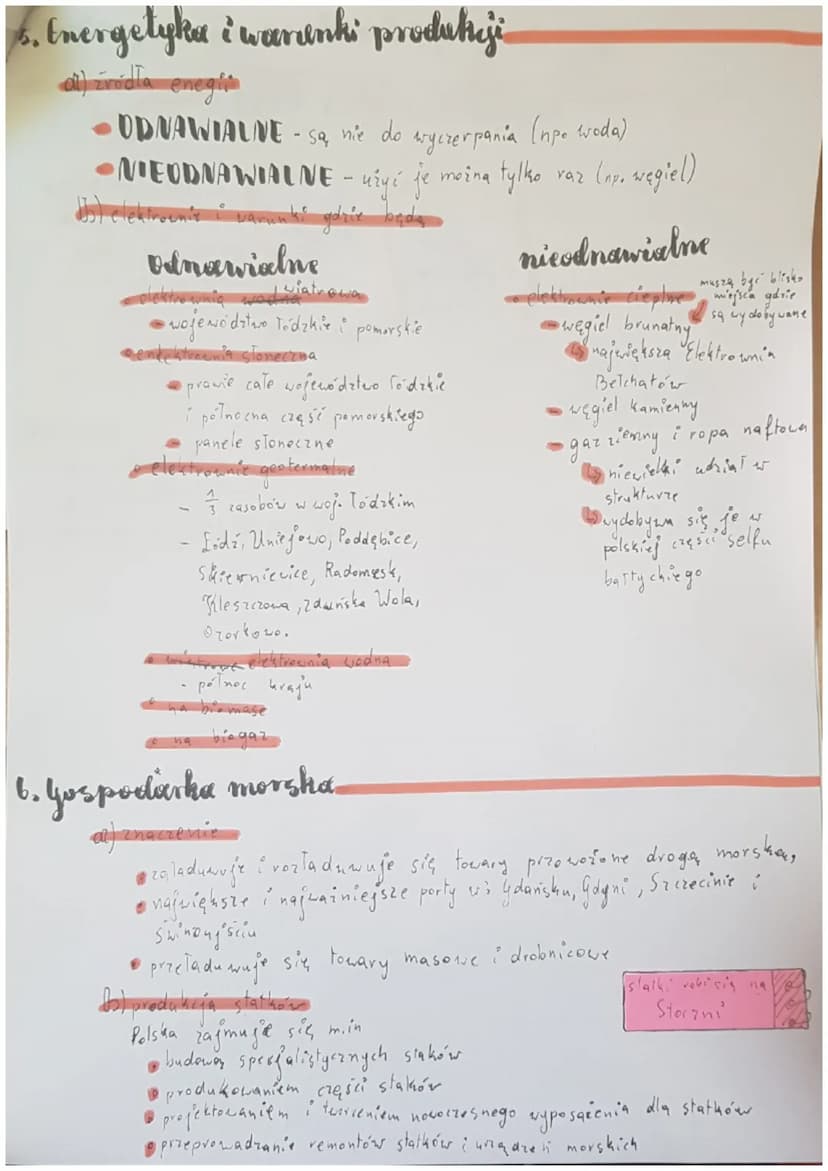 5. Energetyka i warunki produkcji
a) źródła enegii
• ODNAWIALNE - są nie do wyczerpania (np. woda)
• NIEODNAWIALNE - użyć je można tylko raz (np. węgiel)
b) elektrownie i warunki gdzie będą
odnawialne
• elektrownia wodna wiatrowa
- województwo łódzkie i pomorskie
elektrownia słoneczna
- prawie całe województwo łódzkie
i północna część pomorskiego
- panele słoneczne
• elektrownie geotermalne
- 1/3 zasobów w woj. łódzkim
- Łódź, Uniejowo, Poddębice,
Skierniewice, Radomsk,
Kleszczowa, Zduńska Wola,
Ozorkowo.
• wiatrowe elektrownia wodna
- północ kraju
• na biomasę
• na biogaz
nieodnawialne
• elektrownie cieplne
muszą być blisko
miejsca gdzie
są wydobywane
- węgiel brunatny
największa Elektrownia
Bełchatów
- węgiel kamienny
- gaz ziemny i ropa naftowa
niewielki udział w
strukturze
wydobywa się je w
polskiej części selfu
bałtyckiego
6. Gospodarka morska
a) znaczenie
• załaduwuje i rozładuwuje się towary przewożone drogą morską,
• największe i najważniejsze porty w: Gdańsku, Gdyni, Szczecinie i
Świnoujściu
• przeładuwuje się towary masowe i drobnicowe
b) produkcja statków
statki robi się na
Stoczni
Polska zajmuje się m.in
• budową specjalistycznych staków
• produkowaniem części staków
• projektowaniem i tworzeniem nowoczesnego wyposażenia dla statków
• przeprowadzanie remontów statków i urządzeń morskich